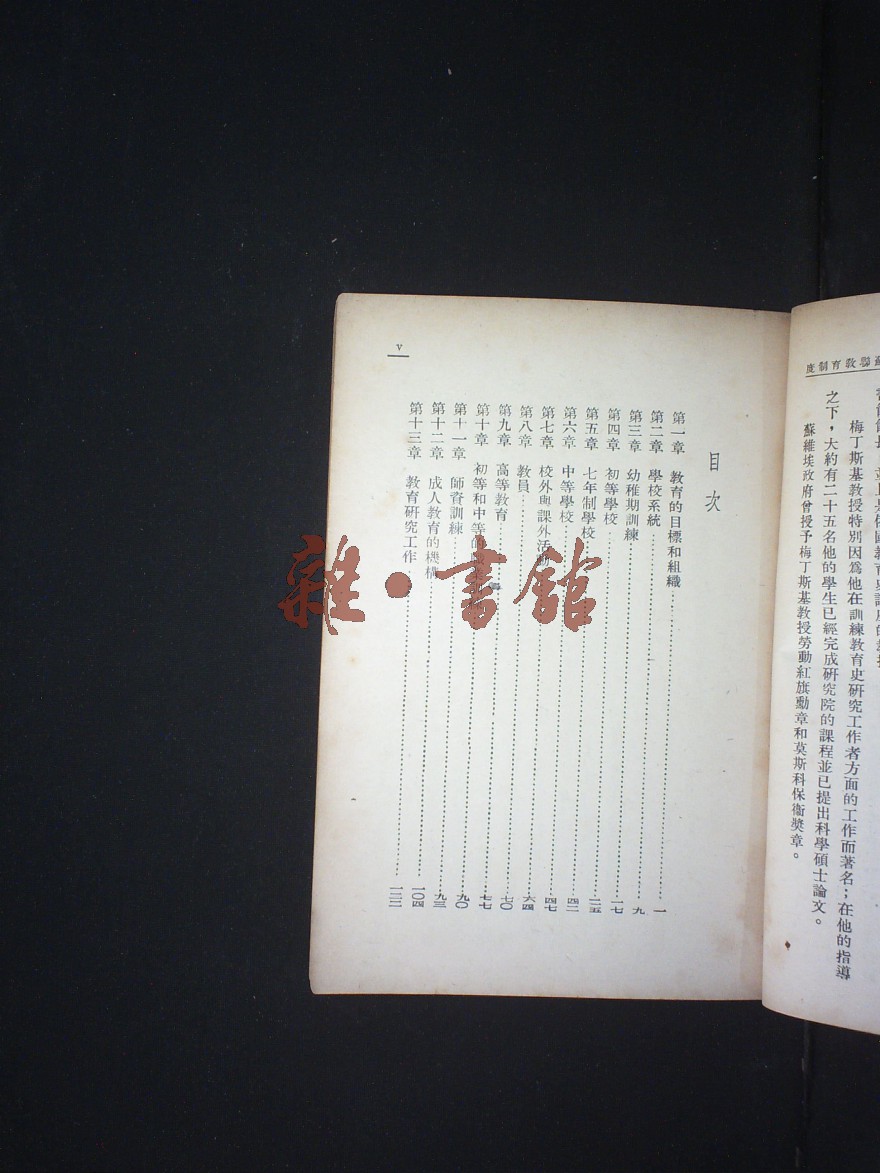 蘇聯教育制度
梅丁斯基教授特別因爲他在訓練教育史研究工作者方面的工作而著名；在他的指導
之下，大約有二十五名他的學生已經完成研究院的課程並已提出科學碩士論文。
蘇維埃政府曾授予梅丁斯基教授勞動紅旗勳章和莫斯科保衞獎章。
目次
第一章 教育的目標和組織 一
第二章 學校系統
第三章 幼稚期訓練 九
第四章 初等學校 一七
第五章 七年制學校 二五
第六章 中等學校 四二
第七章 校外與課外活動 四七
第八章 教員 六四
第九章 高等教育 七〇
第十章 初等和中等的 七七
第十一章 師資訓練 九〇
第十二章 成人教育的機構 九三
第十三章 教育研究工作 一〇四
一二二
v
雜·書館